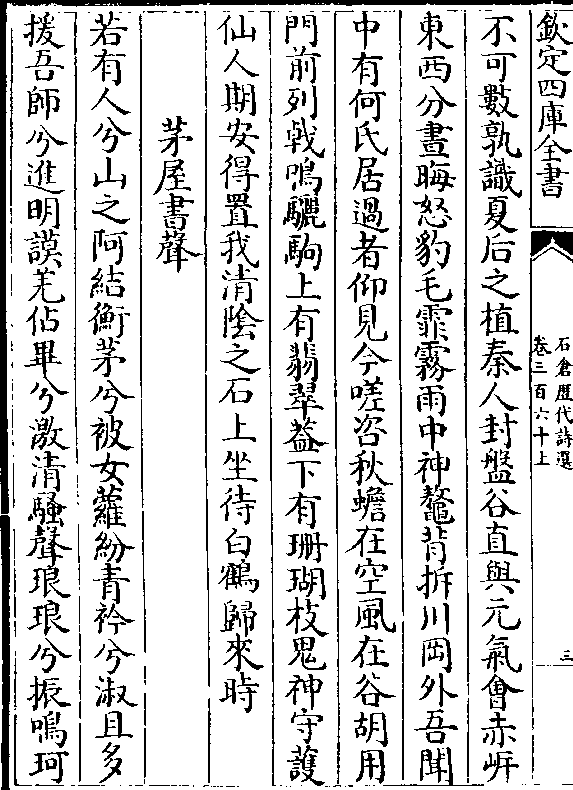 欽定四庫全書
石倉歴代詩選
卷三百六十上
三
不可數孰識夏后之植秦人封盤谷直與元氣會赤㟁
東西分晝晦怒豹毛霏霧雨中神鼇背拆川岡外吾聞
中有何氏居過者仰見今嗟咨秋蟾在空風在谷胡用
門前列戟鳴驪駒上有翡翠葢下有珊瑚枝鬼神守護
仙人期安得置我清陰之石上坐待白鶴歸來時
茅屋書聲
若有人兮山之阿結衡茅兮被女蘿紛青衿兮淑且多
援吾師兮進明謨羌佔畢兮激清騷聲琅琅兮振鳴珂